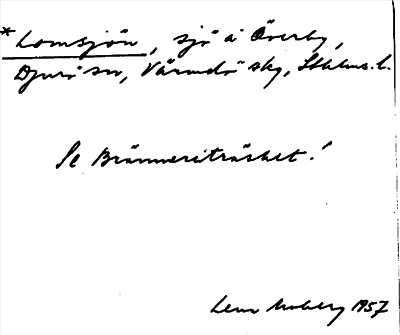 *Lomsjön, sjö å Överby,
Djurö sn, Värmdö skg, Sthlms. l.
Se Bränneriträsket!
Lena Moberg 1957